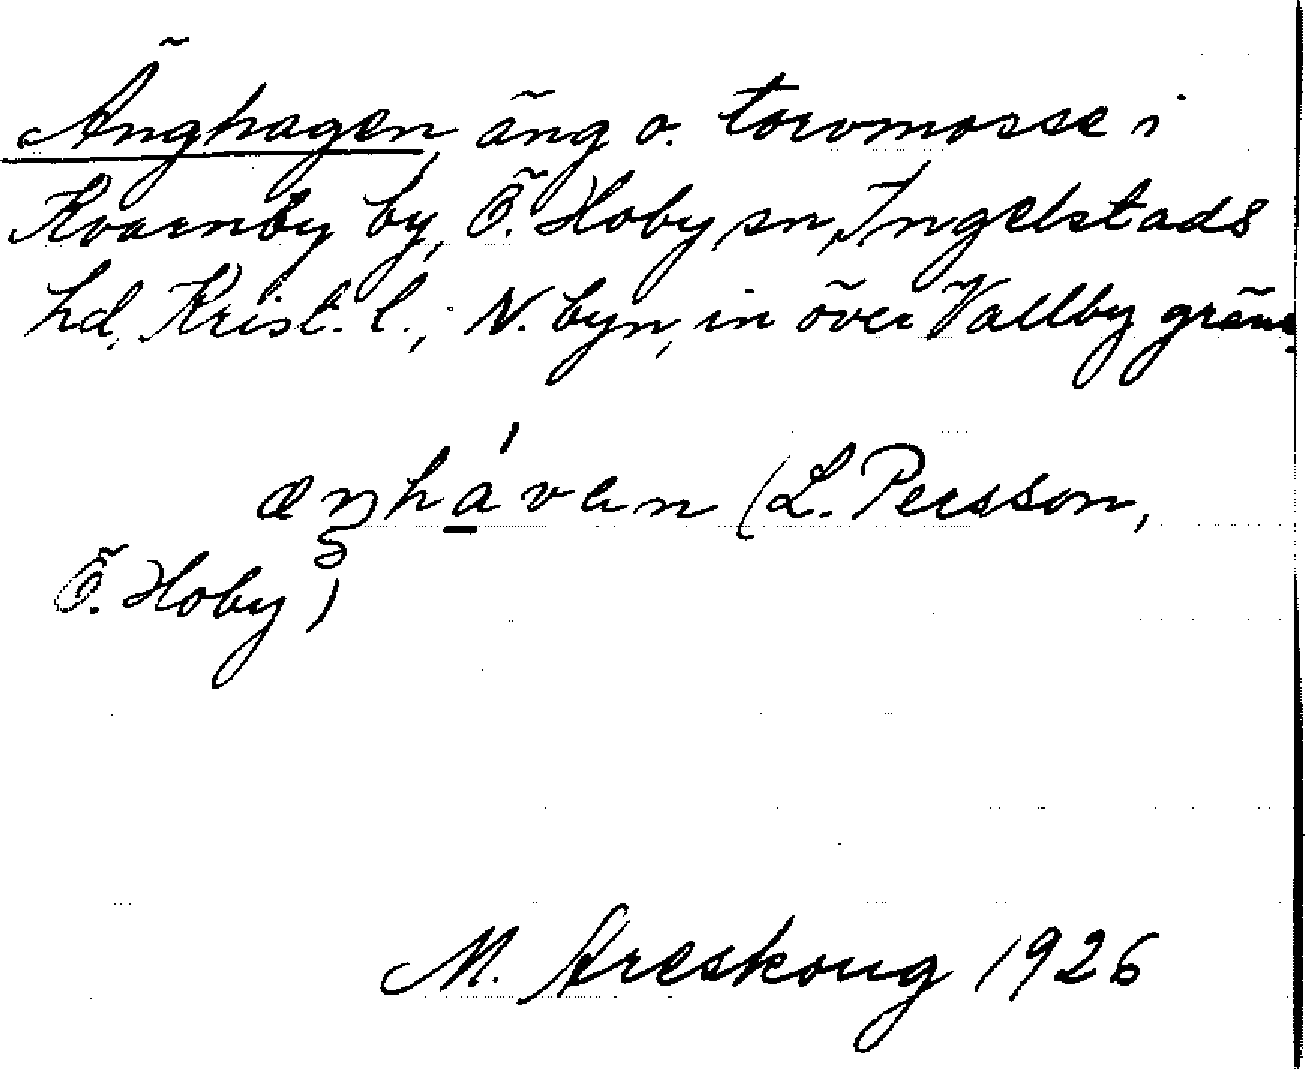 Änghagen, äng o. torvmosse i
Kvarnby by, Ö. Hoby sn, Ingelstads
hd, Krist. l.; N. byn, in över Vallby gräns.
æŋhávan (L. Persson,
Ö. Hoby)
M. Areskoug 1926